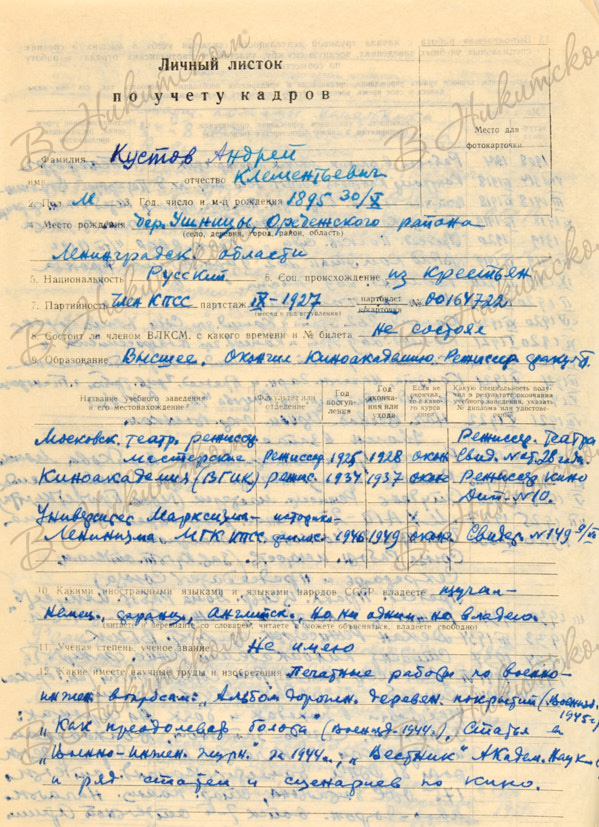 Личный листок
по учету кадров
Место для
фотокарточки
1. Фамилия Кустов Андрей
имя отчество Клементьевич
2. Пол М. 3. Год, число и м-ц рождения 1895 30/X
4. Место рождения дер. Ушницы, Оредежского района
(село, деревня, город, район, область)
Ленинградск. области
5. Национальность Русский 6. Соц. происхождение из крестьян
7. Партийность член КПСС партстаж IX-1927 партбилет № 00164722
(месяц и год вступления) к/карточка
8. Состоит ли членом ВЛКСМ, с какого времени и № билета не состоял
9. Образование Высшее, окончил Киноакадемию. Режиссер. факул.
Название учебного заведения и его местонахождение Факультет или отделение Год поступления Год окончания или ухода Если не окончил, то с какого курса ушел Какую специальность получил в результате окончания учебного заведения, указать № диплома или удостове
Московск. театр. режиссу. Режиссер. Театра
мастерские Режиссер 1925 1928 окон Свид. № 28 года.
Киноакадемия (ВГИК) режис. 1934 1937 оконч Режиссер кино
Дип. № 10.
Университет Марксизма- историко-
Ленинизма, МГК КПСС. филос. 1946 1949 оконч Свидет. № 149
10. Какими иностранными языками и языками народов СССР владеете изучал-
Немец., француз., английск., но ни одним не владею.
(читаете и переводите со словарем, читаете и можете объясняться, владеете свободно)
11. Ученая степень, ученое звание Не имею
12. Какие имеете научные труды и изобретения Печатные работы по военно-
инжен. вопросам: „Альбом дорожн. деревен. покрытий" (Воениз.
1945г.)
„Как преодолевать болота" (Воениз.-1944г.), Статья в
„Военно-инжен. журн." за 1944г., „Вестник" Академ. Наук
и ряд статей и сценариев по кино.
В Никитском
В Никитском
В Никитском
В Никитском
В Никитском
В Никитском